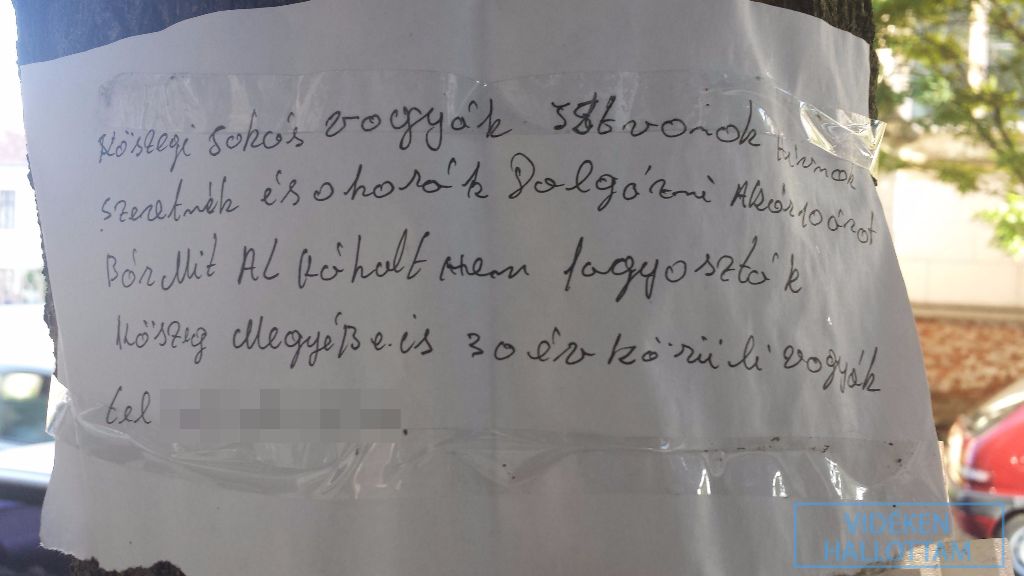 Kőszegi sokós vogyák Istvonok hivnok
szeretnék ésohorák Dolgózni Akórhoórot
Bórmit AL Kóholt nem fogyosztók
Kőszeg MegyéBe.is 30 év körüli vogyák
tel
VIDÉKEN
HALLOTTAM